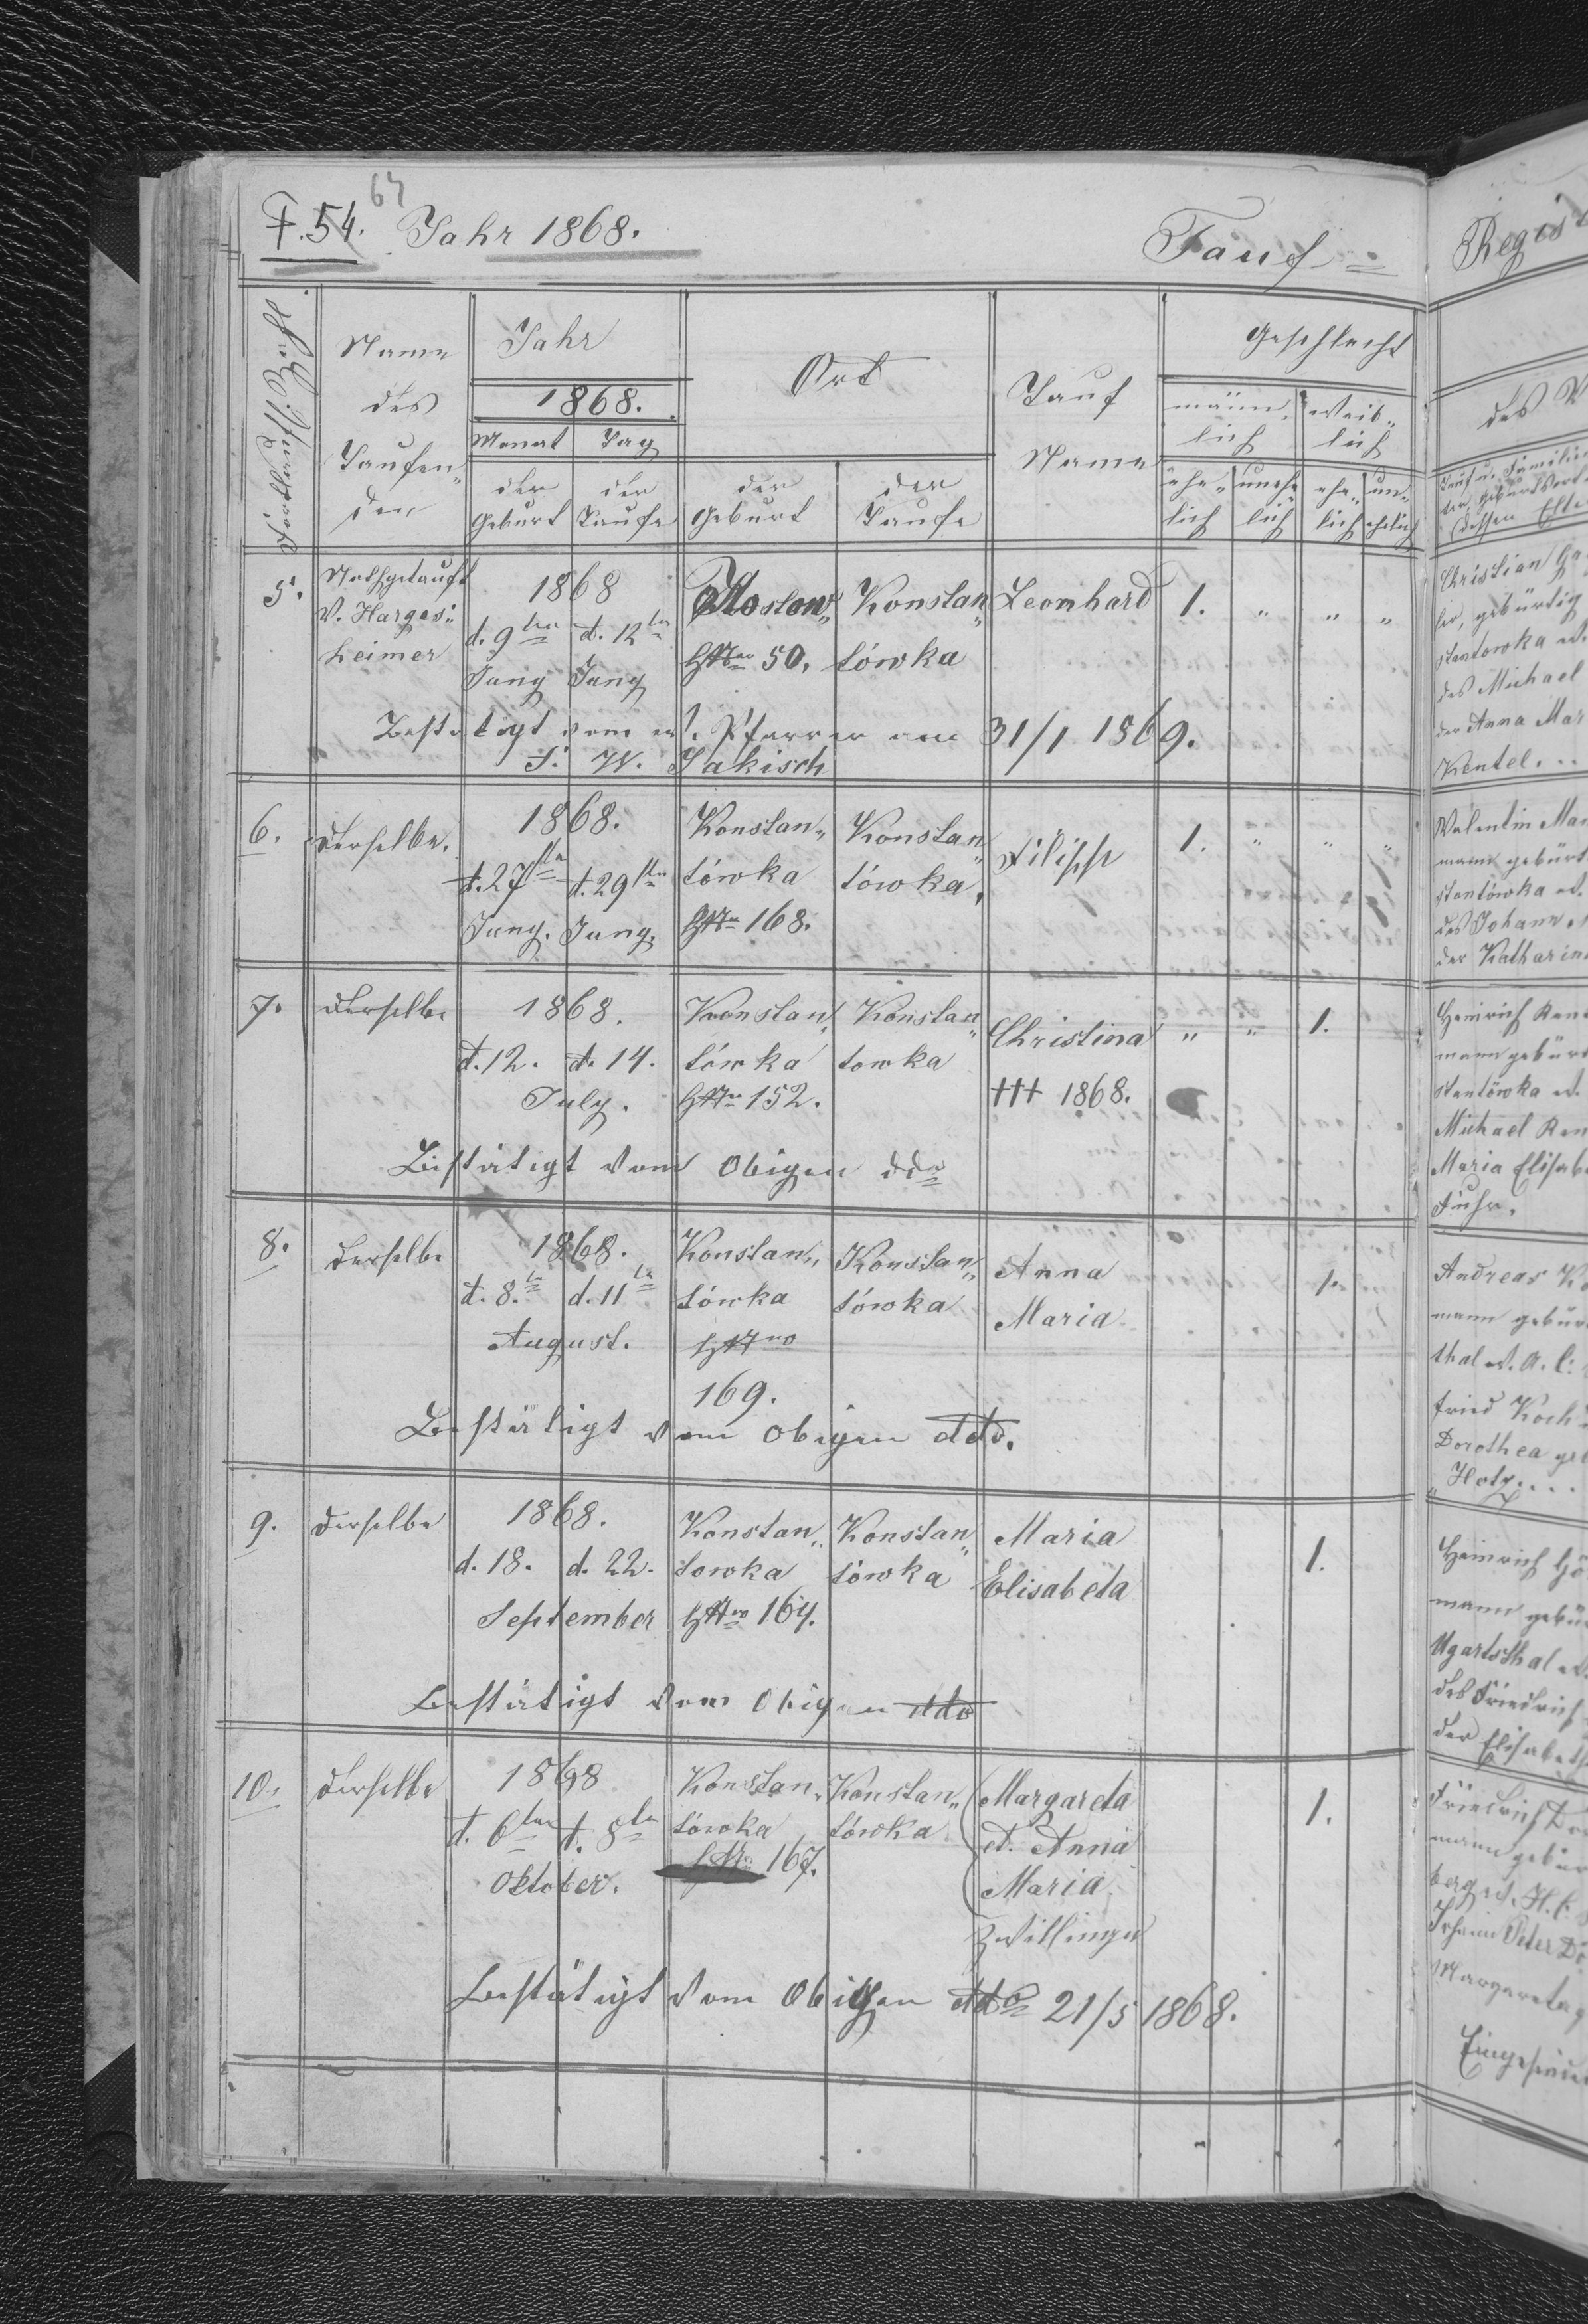 64
F. 54. Jahr 1868.
Tauf=
Fortlauf. Zahl
Name des Taufen„den
Jahr
1868.
Monat Tag
der Geburt
der Taufe
Ort
der Geburt
der Taufe
Tauf Name
Geschlecht
männ„lich
weib„lich
ehe„lich
unehlich
ehe„lich
un„ehelich
5.
Nothgetauft
V. Harges„
heimer
1868
d. 9ten d. 12ten
Juny Juny
HNro 50.
Konstan„
tówka
Leonhard
1. „ „ „
Bestätigt vom ev. Pfarrer am 31/1 1869.
F. W. Jakisch
6.
Derselbe.
1868.
d. 27ten d. 29ten
Juny. Juny.
Konstan„
tówka
HNro 168.
Konstan„
tówka.
Filipp
1. „ „ „
7.
Derselbe
1868.
d. 12. d. 14.
July.
Konstan„
tówka
HNro 152.
Konstan„
towka
Christina
††† 1868.
„ „ 1.
Bestätigt vom Obigen ddo
8.
Derselbe
1868.
d. 8.te d. 11te
August.
Konstan„
tówka
HNro
169.
Konstan„
tówka
Anna
Maria
1.
Bestätigt vom Obigen ddo.
9.
Derselbe
1868.
d. 18. d. 22.
September
Konstan„
towka
HNro 164.
Konstan„
tówka
Maria
Elisabeta
1.
Bestätigt vom Obigen ddo
10.
Derselbe
1868
d. 6ten d. 8ten
Oktober.
Konstan„
tówka
HNro 167.
Konstan„
tówka
Margareta
et. Anna
Maria
Zwillinge
1.
Bestätigt vom Obigen ddo 21/5 1868.
Regist
des V
Christian
gebürtig
stantowka
des Michael
der Anna Mar
Kentel...
Valentin Mar
mann gebürt
stantówka
des Johann
der Katharin
Heinrich Ren
mann gebürt
stantówka
Michael Ren
Maria Elisab
Fuhr.
Andreas Ko
mann gebür
thal
fried Koch
Dorothea geb
Hotz....
Heinrich
mann gebü
Ugartsthal
des Friedrich
der Elisabeth
Friedrich
mann gebür
berg
Johann Peter
Margareta g